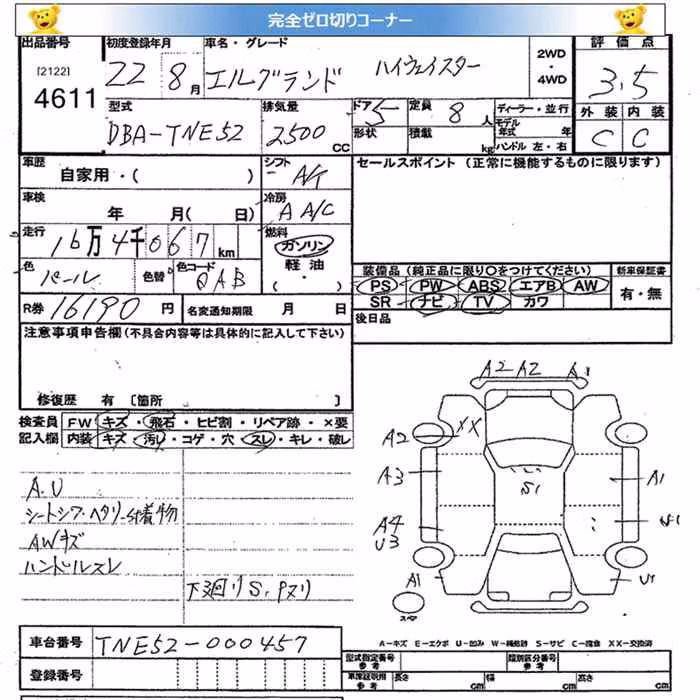 完全ゼロ切りコーナー
出品番号 初度登録年月 車名・グレード 2WD・4WD 評価点
[2122]
4611 22 8月 エルグランド ハイウェイスター 3.5
型式 排気量 ドア 定員 ディーラー・並行 外装 内装
DBA-TNE52 2500cc 5 8人 モデル年式 年 C C
形状 積載 kg ハンドル 左・右
車歴 自家用・( ) シフト A/T セールスポイント (正常に機能するものに限ります)
車検 年 月( 日) 冷房 A A/C
走行 16万4千067km 燃料 ガソリン
軽油
( ・ )
色 パール 色替 色コード QAB 装備品 (純正品に限り○をつけてください) 新車保証書
PS PW ABS エアB AW 有・無
SR ナビ TV カワ
R券 16190円 名変通知期限 月 日 後日品
注意事項申告欄 (不具合内容等は具体的に記入して下さい)
修復歴 有 [箇所 ]
検査員 FW キズ・飛石・ヒビ割・リペア跡・×要
記入欄 内装 キズ・汚れ・コゲ・穴・スレ・キレ・破レ
A2 A2 A1
XX
A2
A3 S1 A1
A.U
シートシブ・ヘタリー付着物
A4
U3
AWキズ
ハンドルスレ
A1 U1
下廻りS,Pヌリ
スペア
A-キズ E-エクボ U-凹み W-補修跡 S-サビ C-腐食 XX-交換済
車台番号 TNE52-000457
型式指定番号 参考 類別区分番号 参考
登録番号
車庫証明用 参考 長さ cm 幅 cm 高さ cm